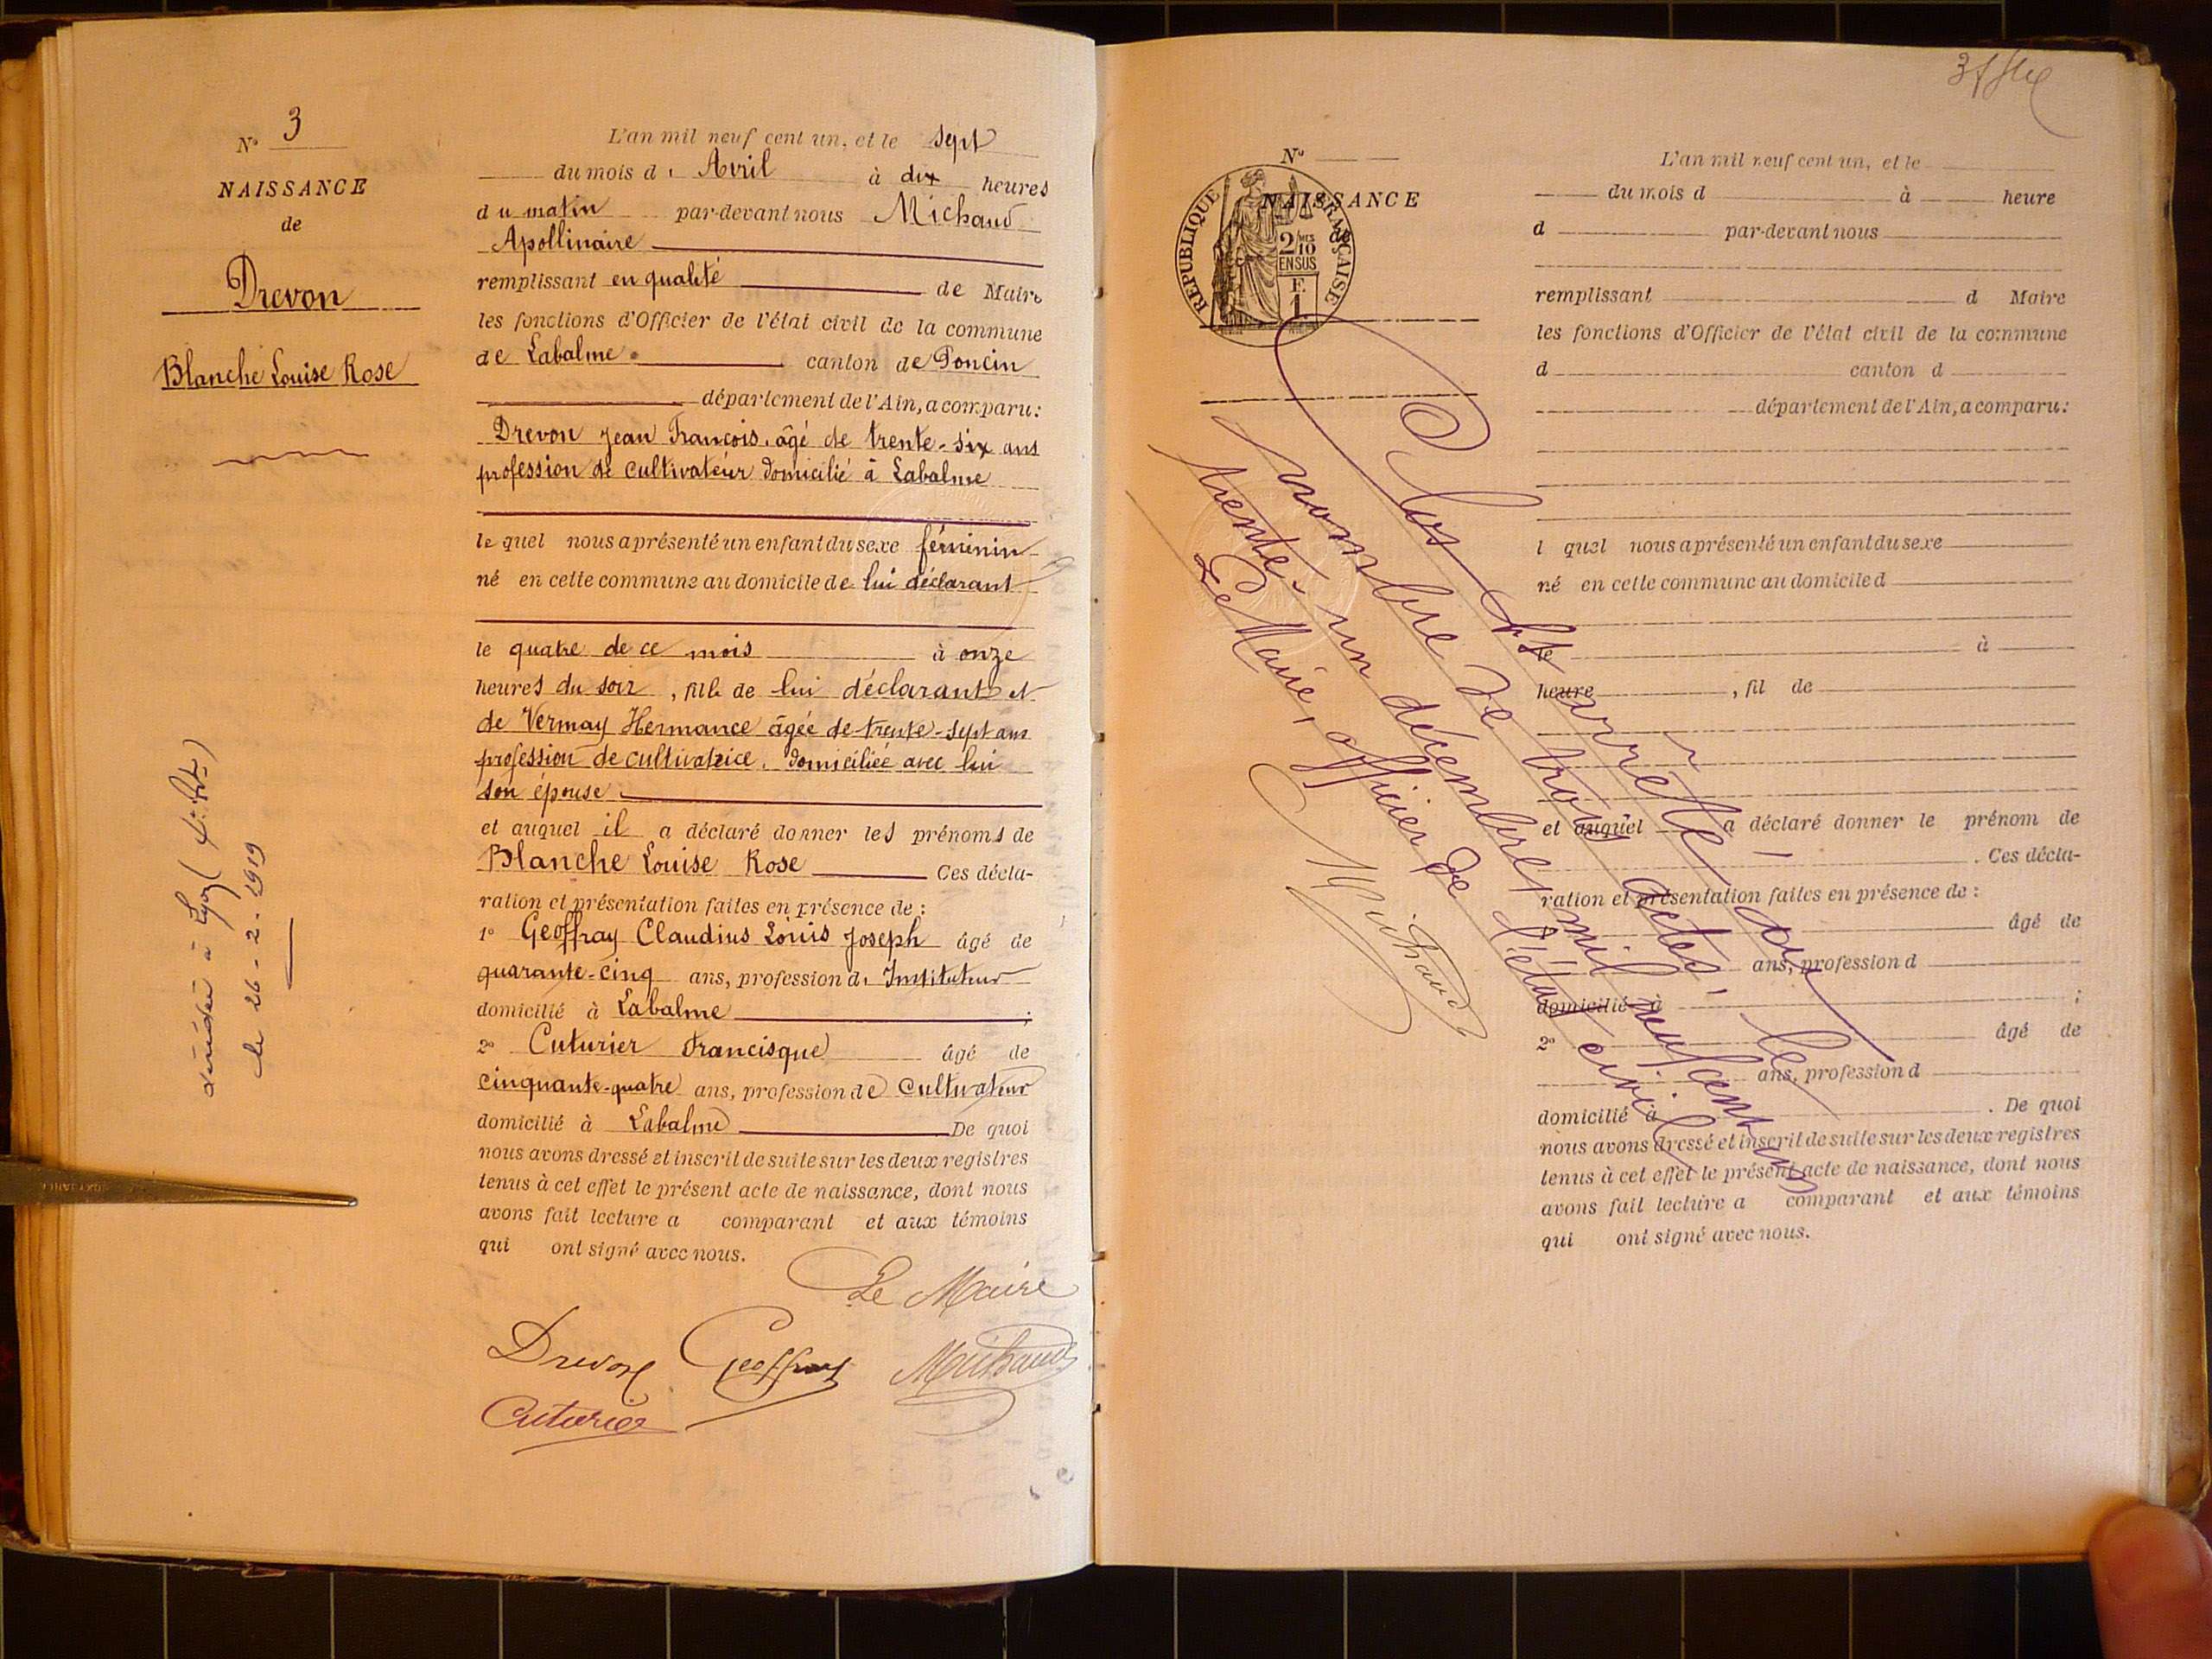 N° 3
NAISSANCE
de
Drevon
Blanche Louise Rose
décédée à Lyon
le 26-2-1919
L'an mil neuf cent un, et le sept
du mois d' Avril à dix heures
du matin par-devant nous Michaud
Apollinaire
remplissant en qualité de Maire
les fonctions d'Officier de l'état civil de la commune
de Labalme canton de Poncin
département de l'Ain, a comparu:
Drevon Jean François, âgé de trente-six ans
profession de cultivateur domicilié à Labalme
le quel nous a présenté un enfant du sexe féminin
né en cette commune au domicile de lui déclarant
le quatre de ce mois à onze
heures du soir, fille de lui déclarant et
de Vermay Hermance âgée de trente-sept ans
profession de cultivatrice, domiciliée avec lui
son épouse
et auquel il a déclaré donner les prénoms de
Blanche Louise Rose Ces décla-
ration et présentation faites en présence de :
1° Geoffray Claudius Louis Joseph âgé de
quarante-cinq ans, profession d' Instituteur
domicilié à Labalme ;
2° Cuturier Francisque âgé de
cinquante-quatre ans, profession de cultivateur
domicilié à Labalme De quoi
nous avons dressé et inscrit de suite sur les deux registres
tenus à cet effet le présent acte de naissance, dont nous
avons fait lecture a comparant et aux témoins
qui ont signé avec nous.
Le Maire
Drevon Geoffray Michaud
Cuturier
N°
NAISSANCE
de
REPUBLIQUE FRANÇAISE
2/10 MES
EN SUS
F.
1
L'an mil neuf cent un, et le
du mois d à heure
d par-devant nous
remplissant d Maire
les fonctions d'Officier de l'état civil de la commune
d canton d
département de l'Ain, a comparu:
l quel nous a présenté un enfant du sexe
né en cette commune au domicile d
le à
heure , fil de
et auquel a déclaré donner le prénom de
. Ces décla-
ration et présentation faites en présence de :
1° âgé de
ans, profession d
domicilié à ;
2° âgé de
ans, profession d
domicilié à . De quoi
nous avons dressé et inscrit de suite sur les deux registres
tenus à cet effet le présent acte de naissance, dont nous
avons fait lecture a comparant et aux témoins
qui ont signé avec nous.
Clos et arrêté au
nombre de trois actes, le
trente-un décembre mil neuf cent un
Le Maire, officier de l'état civil
Michaud